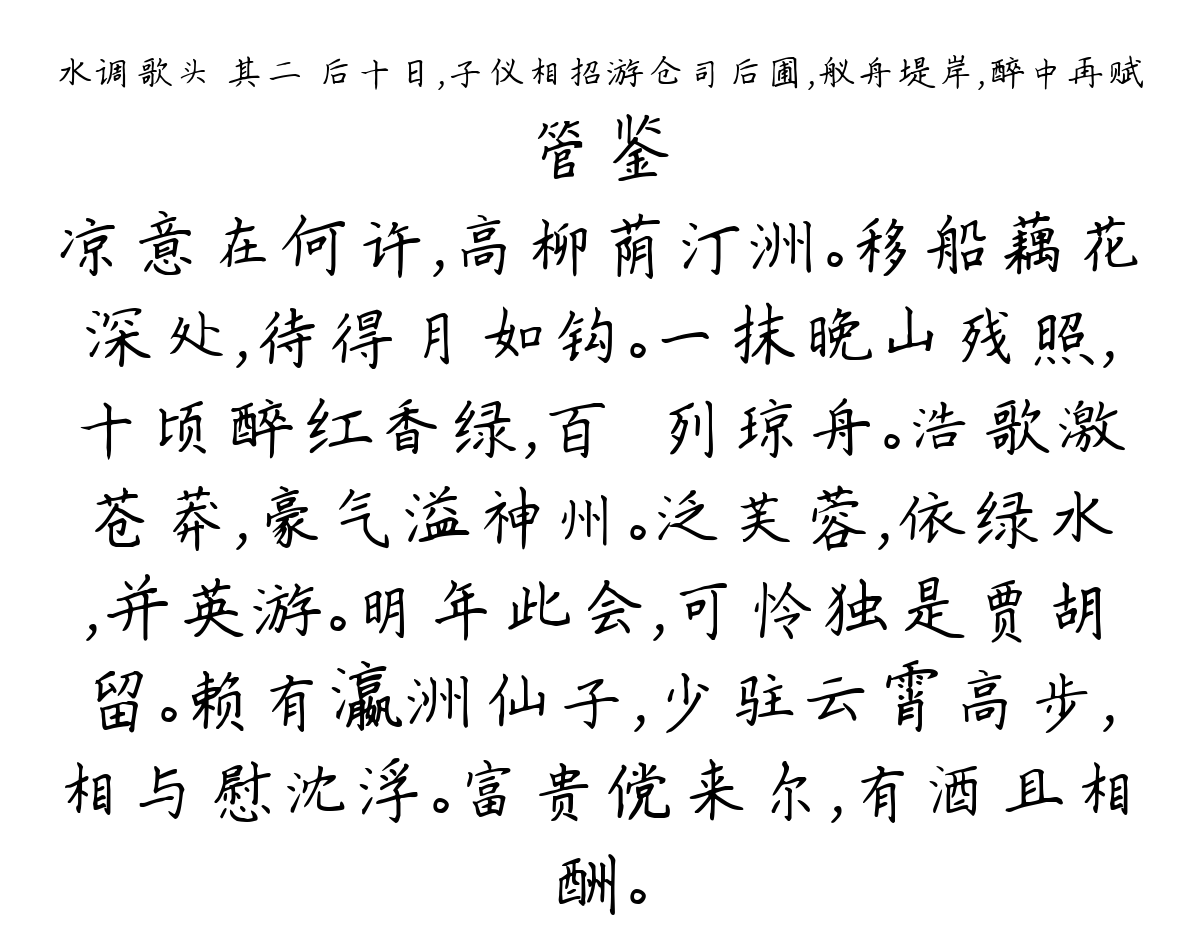 水调歌头 其二 后十日,子仪相招游仓司后圃,舣舟堤岸,醉中再赋
管鉴
凉意在何许,高柳荫汀洲。移船藕花
深处,待得月如钩。一抹晚山残照,
十顷醉红香绿,百 列琼舟。浩歌激
苍莽,豪气溢神州。泛芙蓉,依绿水
,并英游。明年此会,可怜独是贾胡
留。赖有瀛洲仙子,少驻云霄高步,
相与慰沈浮。富贵傥来尔,有酒且相
酬。